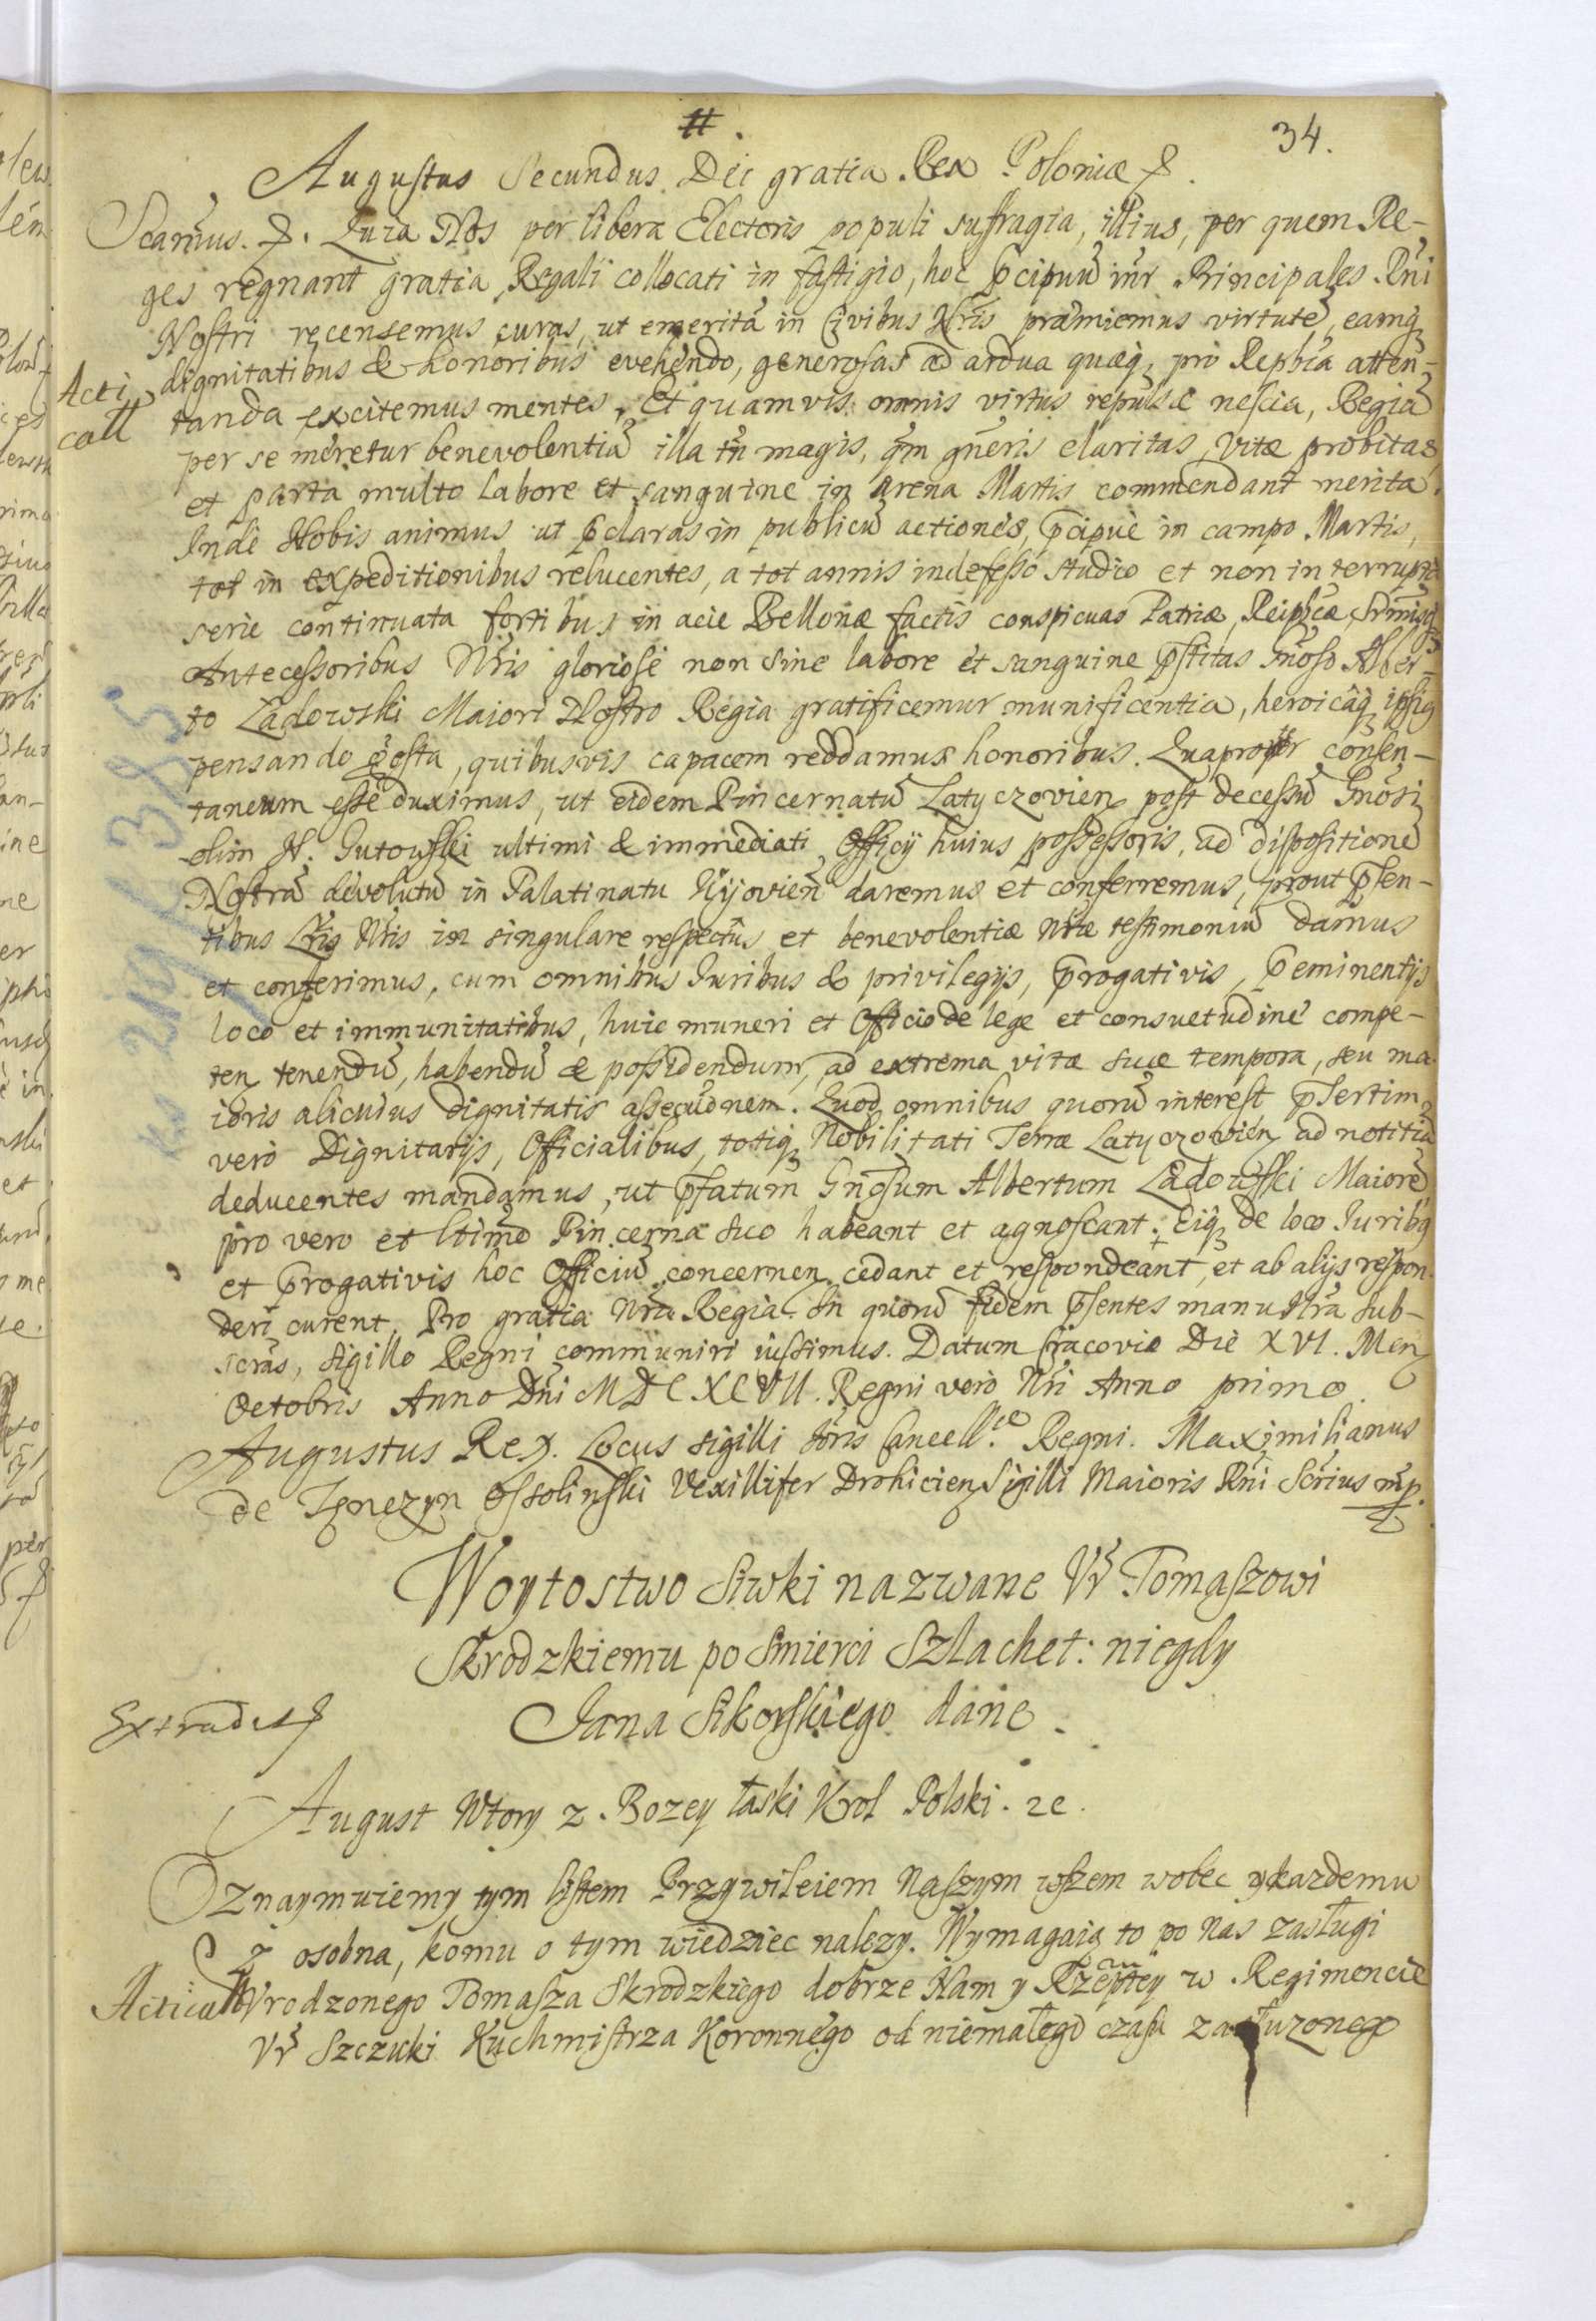 #.
34.
Augustus Secundus Dei gratia Rex Poloniæ &.
Scarmus. &. Quia Nos per libera Electoris populi suffragia, illius, per quem Re-
ges regnant gratia Regali collocati in fastigio, hoc p̄cipuū inr̄ Principales Rn̄i
Nostri recensemus curas, ut emeritā in Civibus Nr̄is præmiemus virtutē, eamq̧
Acti
dignitatibus & honoribus evehendo, generosas ad ardua quæq̧ pro Repb̄ca atten-
catt
tanda excitemus mentes. Et quamvis omnis virtus repulsæ nescia, Regiā
per se meretur benevolentiā illa tn̄ magis, qm̄ gn̄eris claritas, vitæ probitas
et parta multo labore et sanguine in arena Martis commendant merita.
Inde Nobis animus ut p̄claras in publicū actiones, p̄cipue in campo Martis,
tot in expeditionibus relucentes, a tot annis indefesso studio et non interrupta
serie continuata fortibus in acie Bellonæ factis conspicuas Patriæ, Reipb̄cæ, Srm̄isq̧
Antecessoribus Nr̄is gloriose non sine labore et sanguine p̄stitas Gn̄oso Alber-
to Ladowski Maiori Nostro Regia gratificemur munificentia, heroicaq̧ ipsiq̧
pensando gesta, quibusvis capacem reddamus honoribus. Quapropter consen-
taneum esse duximus, ut eidem Pincernatū Latyczovien̄ post decessū Gn̄osi
olim N. Gutowski ultimi & immediati Officij huius possessoris, ad dispositionē
Nostrā devolutū in Palatinatu Kijovien̄ daremus et conferremus, prout p̄sen-
tibus Lr̄is Nr̄is in singulare respectūs et benevolentiæ Nr̄æ testimoniū damus
et conferimus, cum omnibus Iuribus & privilegijs, p̄rogativis, p̄eminentijs
loco et immunitatibus, huic muneri et Officio de lege et consuetudine compe-
ten̄ tenendū, habendū & possidendum, ad extrema vitæ suæ tempora, seu ma-
ioris alicuius dignitatis assecuōnem. Quod omnibus quorū interest, p̄sertim
vero Dignitarijs, Officialibus, totiq̧ Nobilitati Terræ Latyczovien̄ ad notitiā
deducentes mandamus, ut p̄fatum Gn̄osum Albertum Ladowski Maiorē
pro vero et ltimo Pincerna suo habeant et agnoscant. Eiq̧ de loco Juribq̧
et p̄rogativis hoc Officiū concernen̄ cedant et respondeant, et ab alijs respon-
deri curent. Pro gratia Nr̄a Regia. In quorū fidem p̄sentes manu Nr̄a sub-
scrās, sigillo Regni communiri iussimus. Datum Cracoviæ Die XVI. Men̄
Octobris Anno Dn̄i MDCXCVII. Regni vero Nr̄i Anno primo.
Augustus Rex. Locus sigilli Mōris Cancell.æ Regni. Maximilianus
de Tęnczyn Ossolinski Vexillifer Drohicien̄ Sigilli Maioris Rn̄i Scrius mp.
Woytostwo Siwki nazwane Vr̄ Tomaszowi
Skrodzkiemu po Smierci Szlachet: niegdy
Extradit
Jana Sikorskiego dane.
August Wtory z Bozey łaski Krol Polski. &c.
Oznaymuiemy tym listem Przywileiem Naszym wszem wobec y kazdemu
z osobna, komu o tym wiedziec nalezy. Wymagaią to po nas zasługi
Acticatt
Vrodzonego Tomasza Skrodzkiego dobrze Nam y Rzeptey w Regimencie
Vr̄ Szczuki Kuchmistrza Koronnego od niemałego czasu zasłuzonego